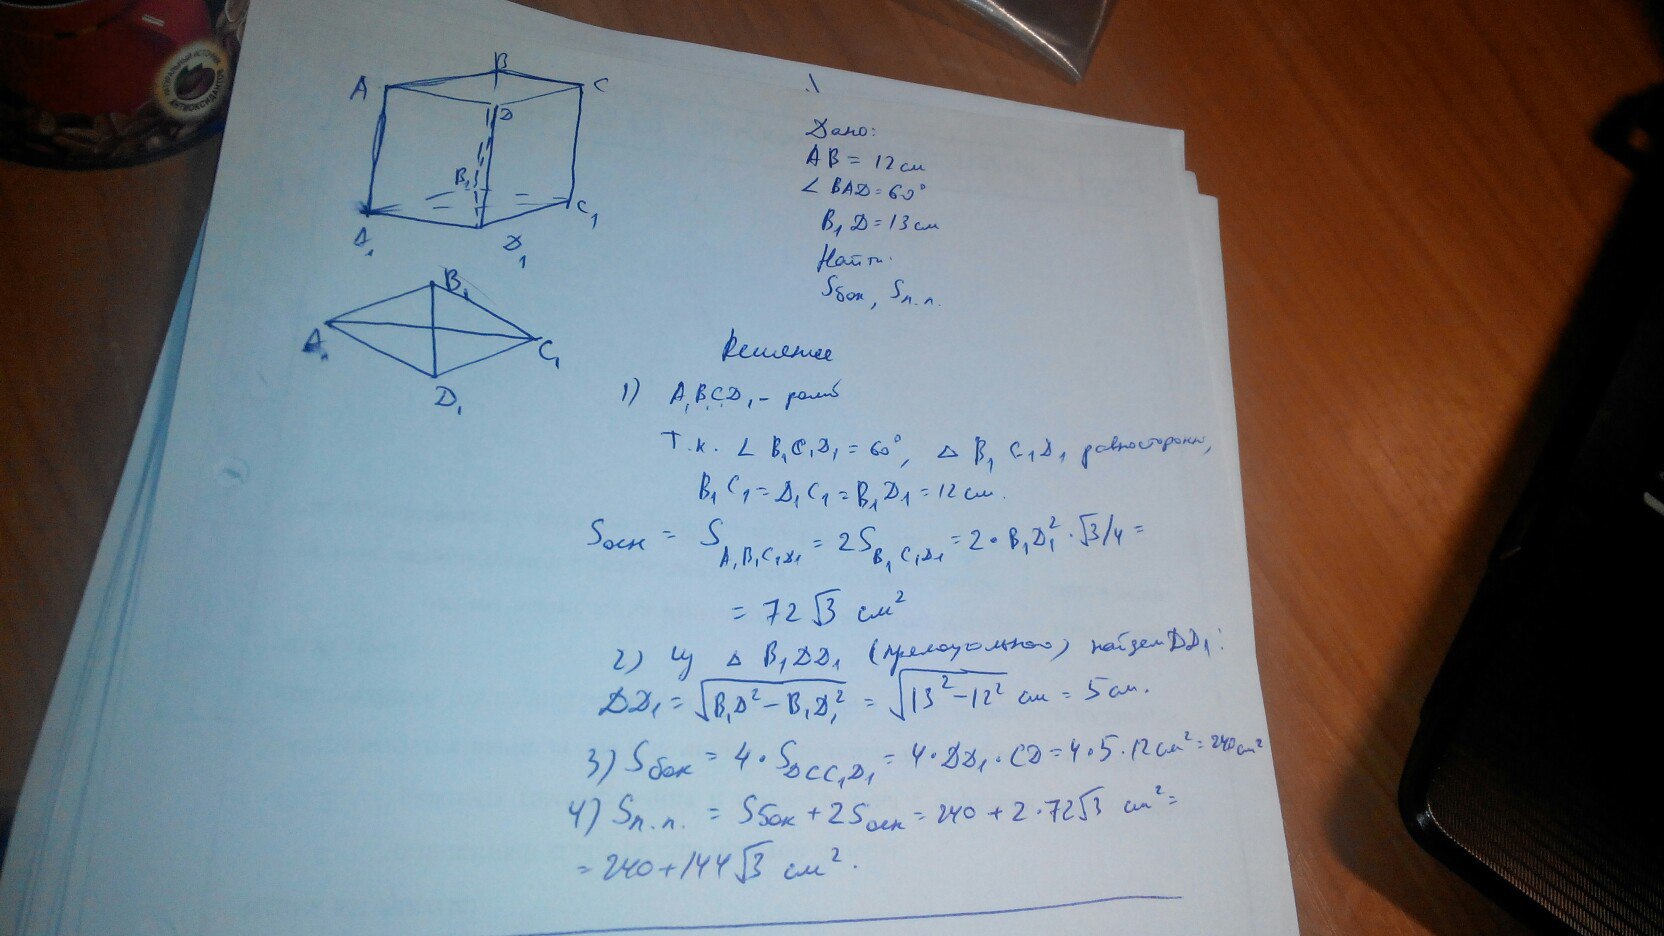 НАТУРАЛЬНЫЙ ИСТОЧНИК
АНТИОКСИДАНТОВ
A B C
D
B₁
A₁ D₁ C₁
B₁
A₁ C₁
D₁
Дано:
AB = 12 см
∠ BAD = 60°
B₁D = 13 см
Найти:
Sбок, Sп.п.
Решение
1) A₁B₁C₁D₁ - ромб
Т.к. ∠ B₁C₁D₁ = 60°, △ B₁C₁D₁ равносторонн,
B₁C₁ = D₁C₁ = B₁D₁ = 12 см.
Sосн = S A₁B₁C₁D₁ = 2S B₁C₁D₁ = 2 · B₁D₁² · √3/4 =
= 72√3 см²
2) Из △ B₁DD₁ (прямоугольного) найдем DD₁:
DD₁ = √B₁D² - B₁D₁² = √13² - 12² см = 5 см.
3) Sбок = 4 · S DCC₁D₁ = 4 · DD₁ · CD = 4 · 5 · 12 см² = 240 см²
4) Sп.п. = Sбок + 2Sосн = 240 + 2 · 72√3 см² =
= 240 + 144√3 см².